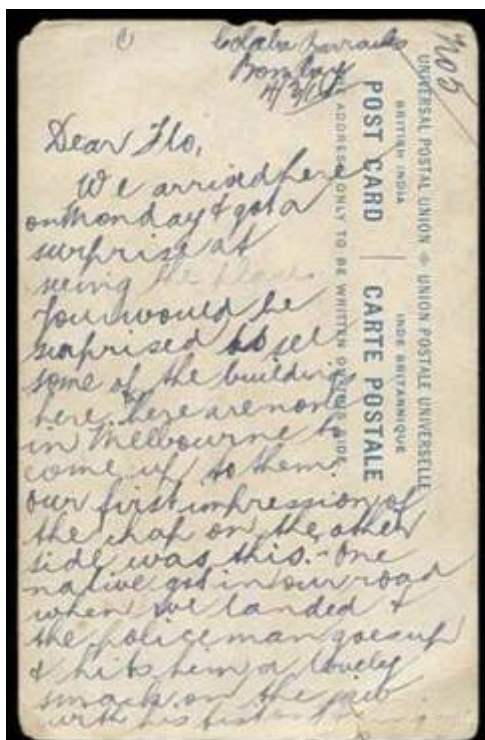 No 5
Colaba Barracks
Bombay
Dear Flo,
We arrived here
on Monday & got a
surprise at
seeing the place.
You would be
surprised to see
some of the buildings
here, there are none
in Melbourne to
come up to them.
Our first impression of
the chap on the other
side was this:- One
native got in our road
when we landed &
the policeman goes up
& hits him a lovely
smack on the jaw
with his fist
UNIVERSAL POSTAL UNION UNION POSTALE UNIVERSELLE
BRITISH INDIA INDE BRITANNIQUE
POST CARD CARTE POSTALE
ADDRESS ONLY TO BE WRITTEN ON THIS SIDE